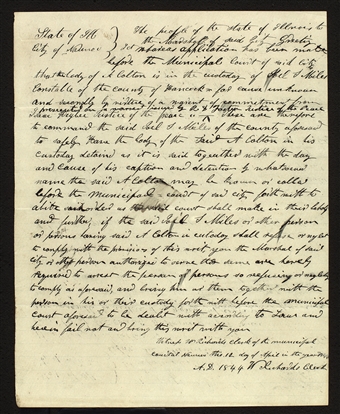 State of Ill
City of Nauvoo } Sct
The people of the State of Illinois to
the Marshal of said City Greeting
Whereas application has been made
before the Municipal Court of said City
that the body of A Colton is in the custody of Joel S Miles
Constable of the county of Hancock for cause unknown
and by virtue of a commitment from
These are therefore
to command the said Joel S Miles of the county aforesaid
to safely have the body of the said A Colton in his
custody detained as it is said together with the day
and cause of his caption and detention by whatsoever
name the said A Colton may be known or called
before the Municipal court of said city forthwith to
abide such order as the said court shall make in their behalf
and further if the said Joel S Miles or other person
or persons having said A Colton in custody shall refuse or neglect
to comply with the provisions of this writ you the Marshal of said
city or other person authorized to serve the same are hereby
required to arrest the person or persons so refusing or neglecting
to comply as aforesaid, and bring him or them together with the
person in his or their custody forthwith before the municipal
court aforesaid to be dealt with according to Law and
herein fail not and bring this writ with you
Witness W Richards clerk of the municipal
court at Nauvoo this 12 day of April in the year
A.D. 1844 W Richards Clerk